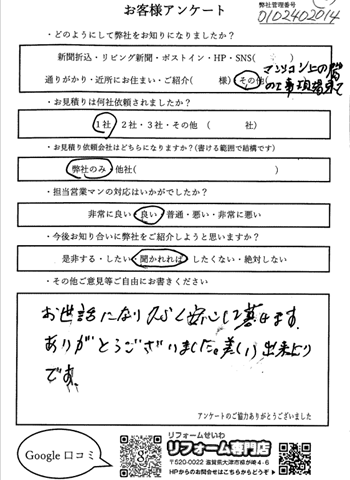 お客様アンケート
弊社管理番号
0102402014
・どのようにして弊社をお知りになりましたか?
新聞折込・リビング新聞・ポストイン・HP・SNS( )
通りがかり・近所にお住まい・ご紹介( 様)その他(
マンション上の階
の工事現場見て
・お見積りは何社依頼されましたか?
1社・2社・3社・その他 ( 社)
・お見積り依頼会社はどちらになりますか?(書ける範囲で結構です)
弊社のみ・他社( )
・担当営業マンの対応はいかがでしたか?
非常に良い・良い・普通・悪い・非常に悪い
・今後お知り合いに弊社をご紹介しようと思いますか?
是非する・したい・聞かれれば・したくない・絶対しない
・その他ご意見等ご自由にお書きください
お世話になり 安心して
ありがとうございました。美しい出来上り
です。
アンケートのご協力ありがとうございました
Google 口コミ
リフォームせいわ
リフォーム専門店
〒520-0022 滋賀県大津市柳が崎4-6
HPからのお問合せはこちらからどうぞ